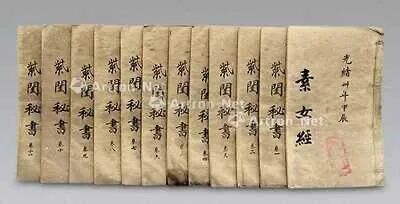 光緒卅年甲辰
素女經
紫閨秘書
卷一
紫閨秘書
卷二
紫閨秘書
卷三
紫閨秘書
卷四
紫閨秘書
紫閨秘書
卷六
紫閨秘書
卷七
紫閨秘書
卷八
紫閨秘書
卷九
紫閨秘書
卷十
紫閨秘書
卷十一
Artron.Net
Artron.Net
Artron.Net